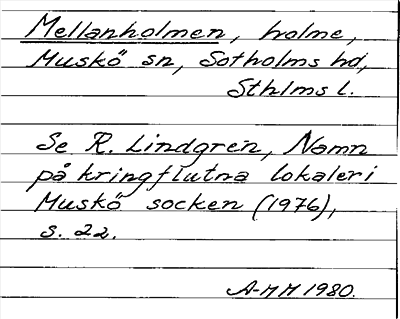 Mellanholmen, holme,
Muskö sn, Sotholms hd,
Sthlms l.
Se R. Lindgren, Namn
på kringflutna lokaler i
Muskö socken (1976),
s. 22.
A-MM 1980.